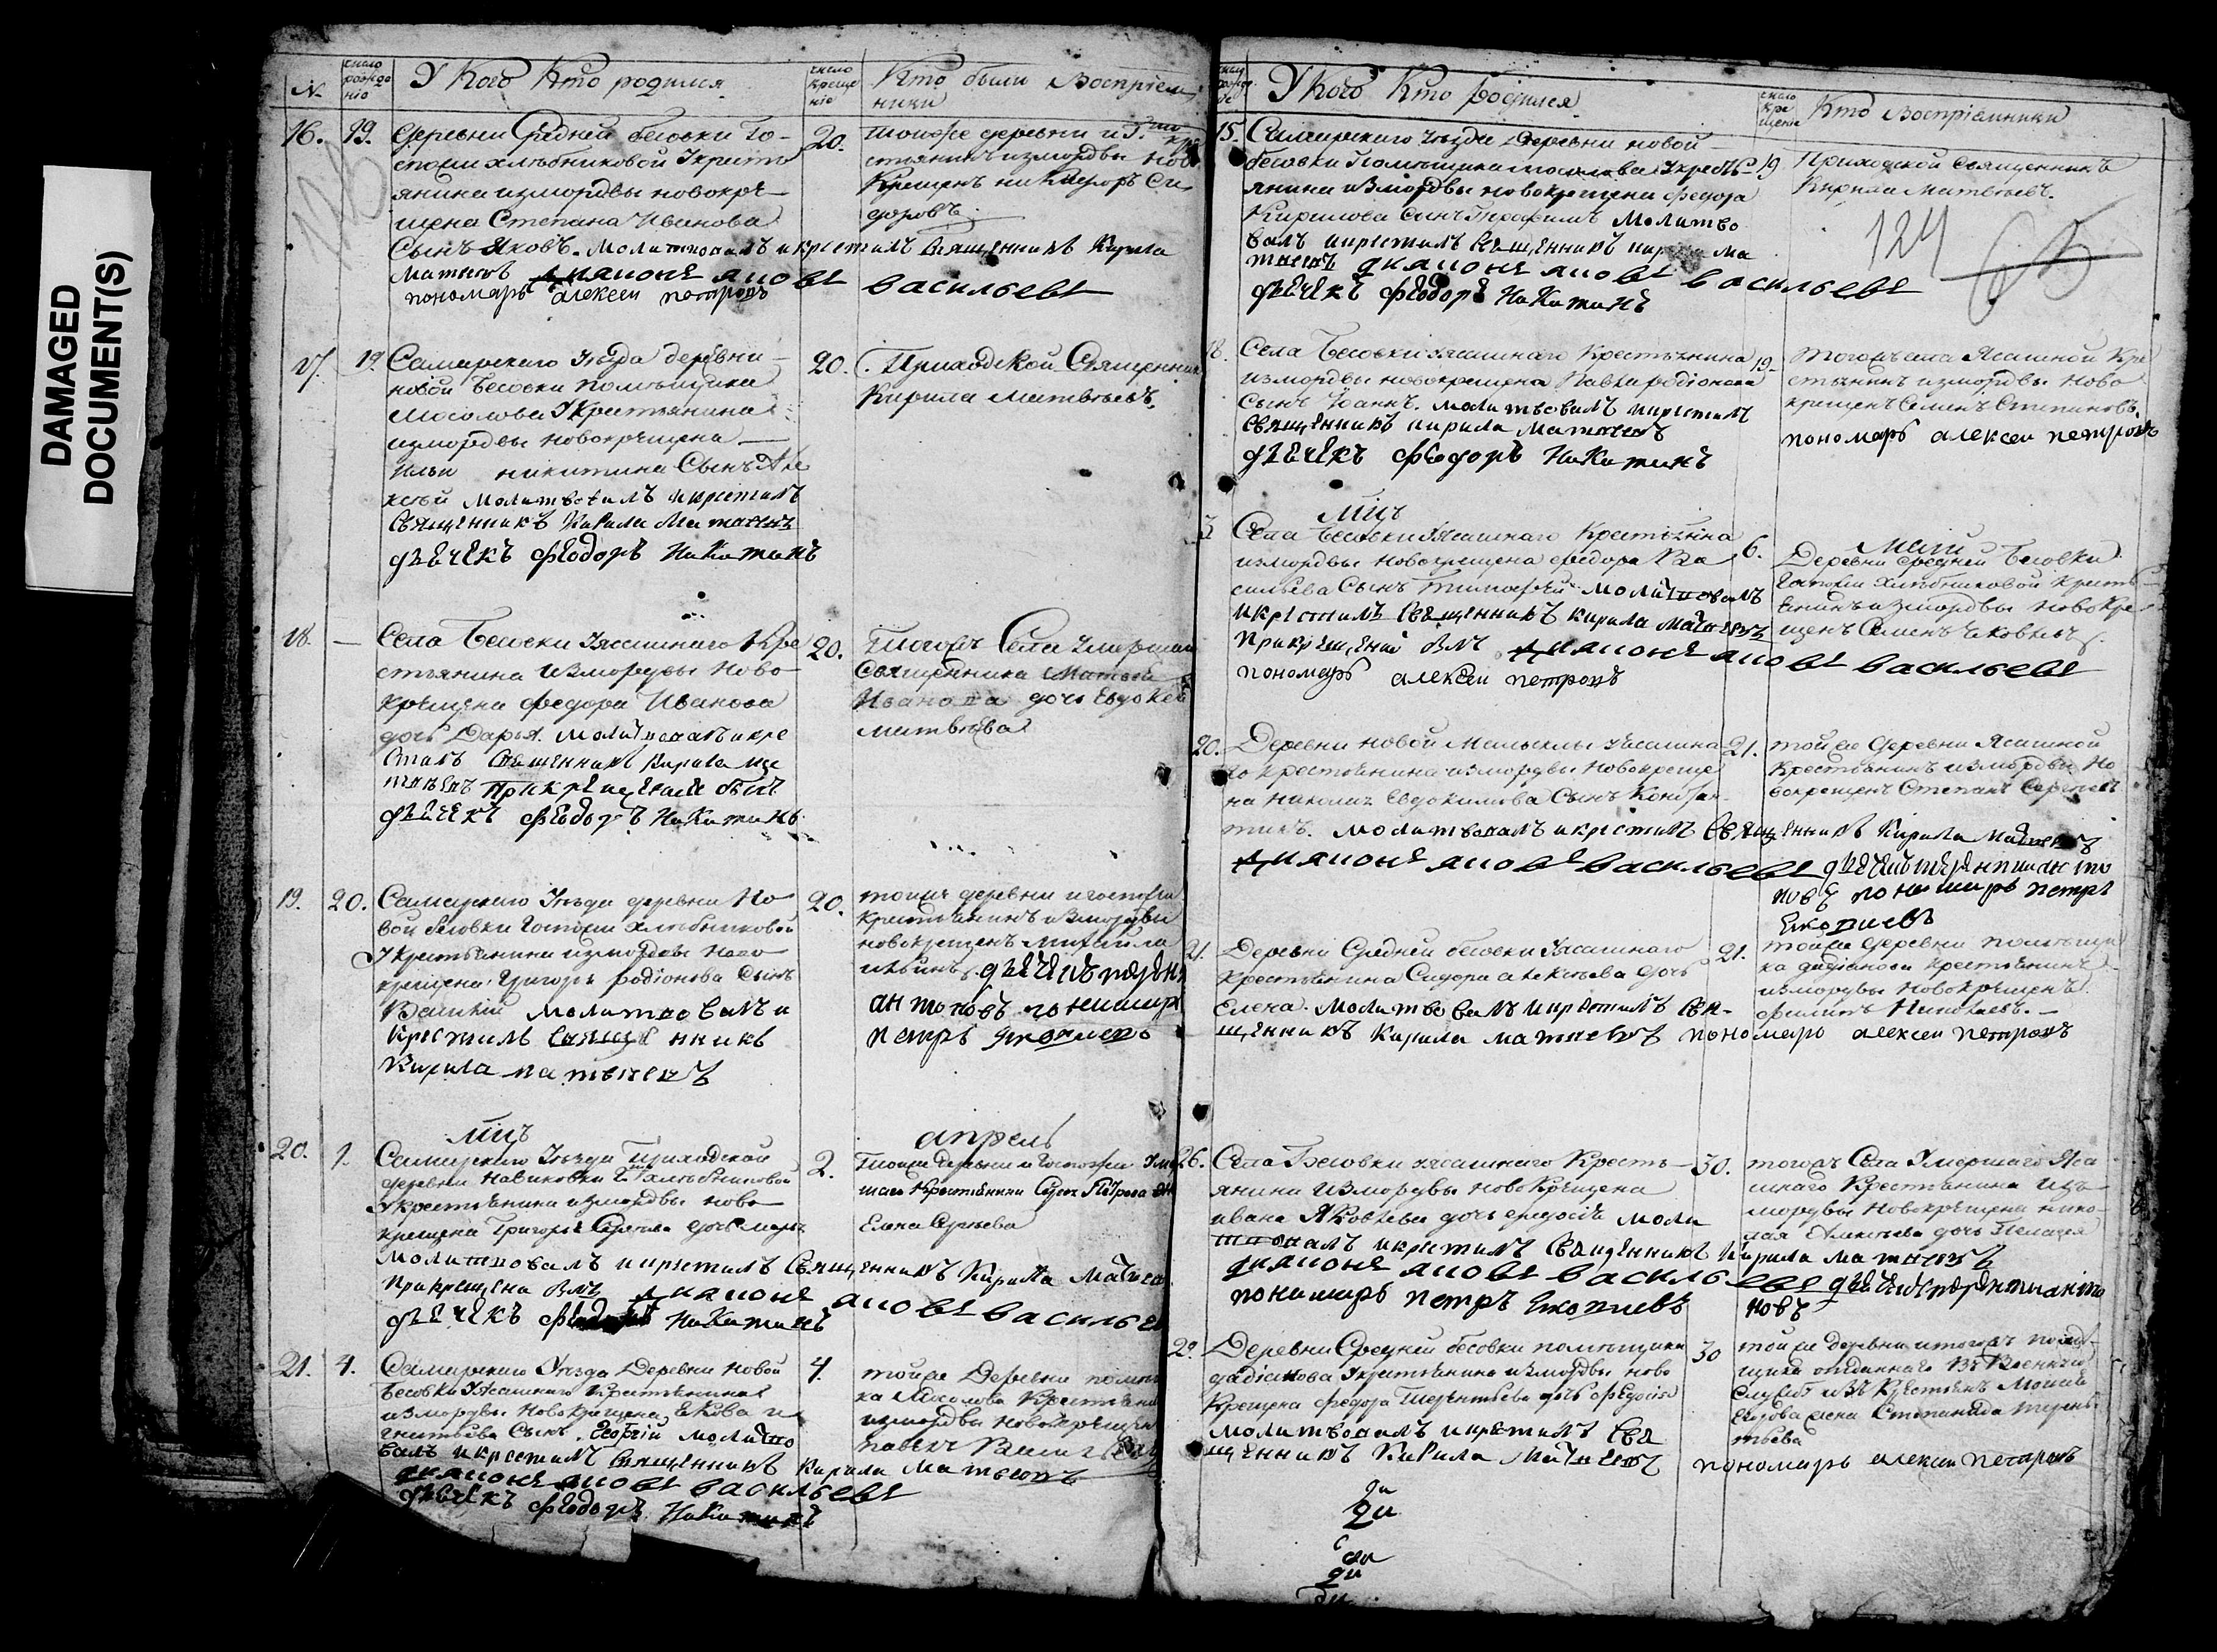 DAMAGED
DOCUMENT(S)
№
число рожде нiо
У Кого Кто родился
число креще нiо
Кто были Воспрiем
ники
16. 19. деревни Средней бесовки Го-
спожи хлѣбниковой Укресть
янина измордвы новокре-
щена Степана Иванова
Сынъ Яковъ. Молитвовалъ икрестилъ Священникъ Кирила
Матвѣевъ дияконъ яковъ васильевъ
пономарь алексеи петровъ
20. тоиже деревни и Г.
стьянинъ измордвы Ново
Крещенъ никифоръ Си
доровъ
17. 19. Самарскаго Уѣзда деревни
новой Бесовки помѣщика
Мосолова Укрестьянина
измордвы новокрещена
Ильи никитина Сынъ Але
ксѣй молитвовалъ икрестилъ
Священникъ Кирила Матвѣевъ
дьячекъ феодоръ Никитинъ
20. Приходской Священник
Кирила Матвѣевъ.
18. — Села Бесовки Уясашнаго Кре
стьянина Измордвы Ново-
крещена федора Иванова
дочь Дарья. Молитвовалъ икре
стилъ Священникъ Кирила Ма
твѣевъ При крещении былъ
дьячекъ феодоръ Никитинъ
20. тогожъ Села умершаго
Священника Матвея
Иванова дочь Евдокея
матвѣева
19. 20. Самарскаго Уѣзда деревни Но
вой бесовки Госпожи хлѣбниковой
Укрестьянина измордвы ново
крещена Григорья родiонова Сынъ
Василiй молитвовалъ и
крестилъ священникъ
Кирила матвѣевъ
20. тоижъ деревни игоспожи
крестьянинъ измордвы
новокрещенъ михайла
ильинъ. дьячекъ
антоновъ пономарь
петръ
мцъ апрель
20. 1. Самарскаго Уѣзда Приходской
деревни Новиковки Г. хлѣбниковой
Укрестьянина измордвы ново-
крещена Григорья Сергѣева дочь марья
молитвовалъ икрестилъ Священникъ Кирила Матвѣев
дияконъ яковъ васильев
дьячекъ феодоръ Никитинъ
2. тоиже деревни и Госпожи
Елена Сергѣева
21. 4. Самарскаго Уѣзда Деревни Новой
Бесовки Уясашнаго Крестьянина
измордвы Новокрещена Якова иг
натьева Сынъ Георгiй молитво
валъ икрестилъ Священникъ Кирила Матвѣевъ
дияконъ яковъ васильевъ
дьячекъ феодоръ Никитинъ
4. тойже Деревни помѣщи
ка Мосолова Крестьянин
измордвы новокрещен
У Кого Кто родился
число кре щенiе
Кто Воспрiемники
15. Самарскаго Уѣзда Деревни новой
бесовки Помѣщика мосолова Укресть
янина измордвы новокрещена федора
Кирилова Сынъ Трофимъ Молитво
валъ икрестилъ Священникъ кирила Ма
твѣевъ дияконъ яковъ васильевъ
дьячекъ феодоръ Никитинъ
19 Приходской священникъ
Кирила Матвѣевъ.
124
18. Села Бесовки Уясашнаго Крестьянина
измордвы новокрещена Павла родiонова
Сынъ Iоаннъ. молитвовалъ икрестилъ
Священникъ кирила Матвѣевъ
дьячекъ феодоръ Никитинъ
19. тогожъ села Ясашной Кре
стьянинъ измордвы Ново
крещенъ Семенъ Степановъ.
пономарь алексеи петровъ
мцъ маiй
3 Села Бесовки Уясашнаго Крестьянина
измордвы новокрещена федора Ва
сильева Сынъ Тимофей молитвовалъ
икрестилъ Священникъ Кирила Матвѣевъ
При крещении былъ дияконъ яковъ васильевъ
пономарь алексеи петровъ
6. Деревни Средней Бесовки
Госпожи хлѣбниковой кресть
янинъ измордвы новокре
щенъ Семенъ Яковлевъ
20. Деревни Новой Малыклы Уясашна
го крестьянина измордвы Новокреще
на Николая Евдокимова Сынъ Констан
тинъ. молитвовалъ икрестилъ Священникъ Кирила Матвѣевъ
дияконъ яковъ васильевъ дьячекъ терентии анто
новъ пономарь петръ
21. тойже Деревни Ясашной
Крестьянинъ измордвы Но
вокрещенъ Степанъ Сергеевъ
21. Деревни Средней бесовки Уясашнаго
крестьянина Сидора алексѣева дочь
Елена. молитвовалъ икрестилъ Свя-
щенникъ Кирила матвѣевъ пономарь алексеи петровъ
21. тойже деревни помѣщи
ка дадiанова крестьянинъ
измордвы Новокрещенъ
филипъ Николаевъ.
26. Села Бесовки Уясашнаго Кресть-
янина Измордвы Новокрещена
ивана Яковлева дочь ефросiя моли
твовалъ икрестилъ Священникъ Кирила матвѣевъ
дияконъ яковъ васильевъ дьячекъ терентии анто
пономарь петръ новъ
30. тогожъ Села Умершаго Яса
шнаго Крестьянина Изъ
мордвы Новокрещена нико-
лая Алексѣева дочь Пелагея
29 Деревни Средней бесовки помѣщика
дадiанова Укрестьянина измордвы ново
Крещена федора Терентьева дочь федосiя
молитвовалъ икрестилъ Свя
щенникъ Кирила Матвѣевъ пономарь алексеи петровъ
30 тойже деревни итогожъ помѣ-
щика отданнаго Въ Военную
Службу изъ Крестьянъ Моисея
жена Степанида терень
тьева